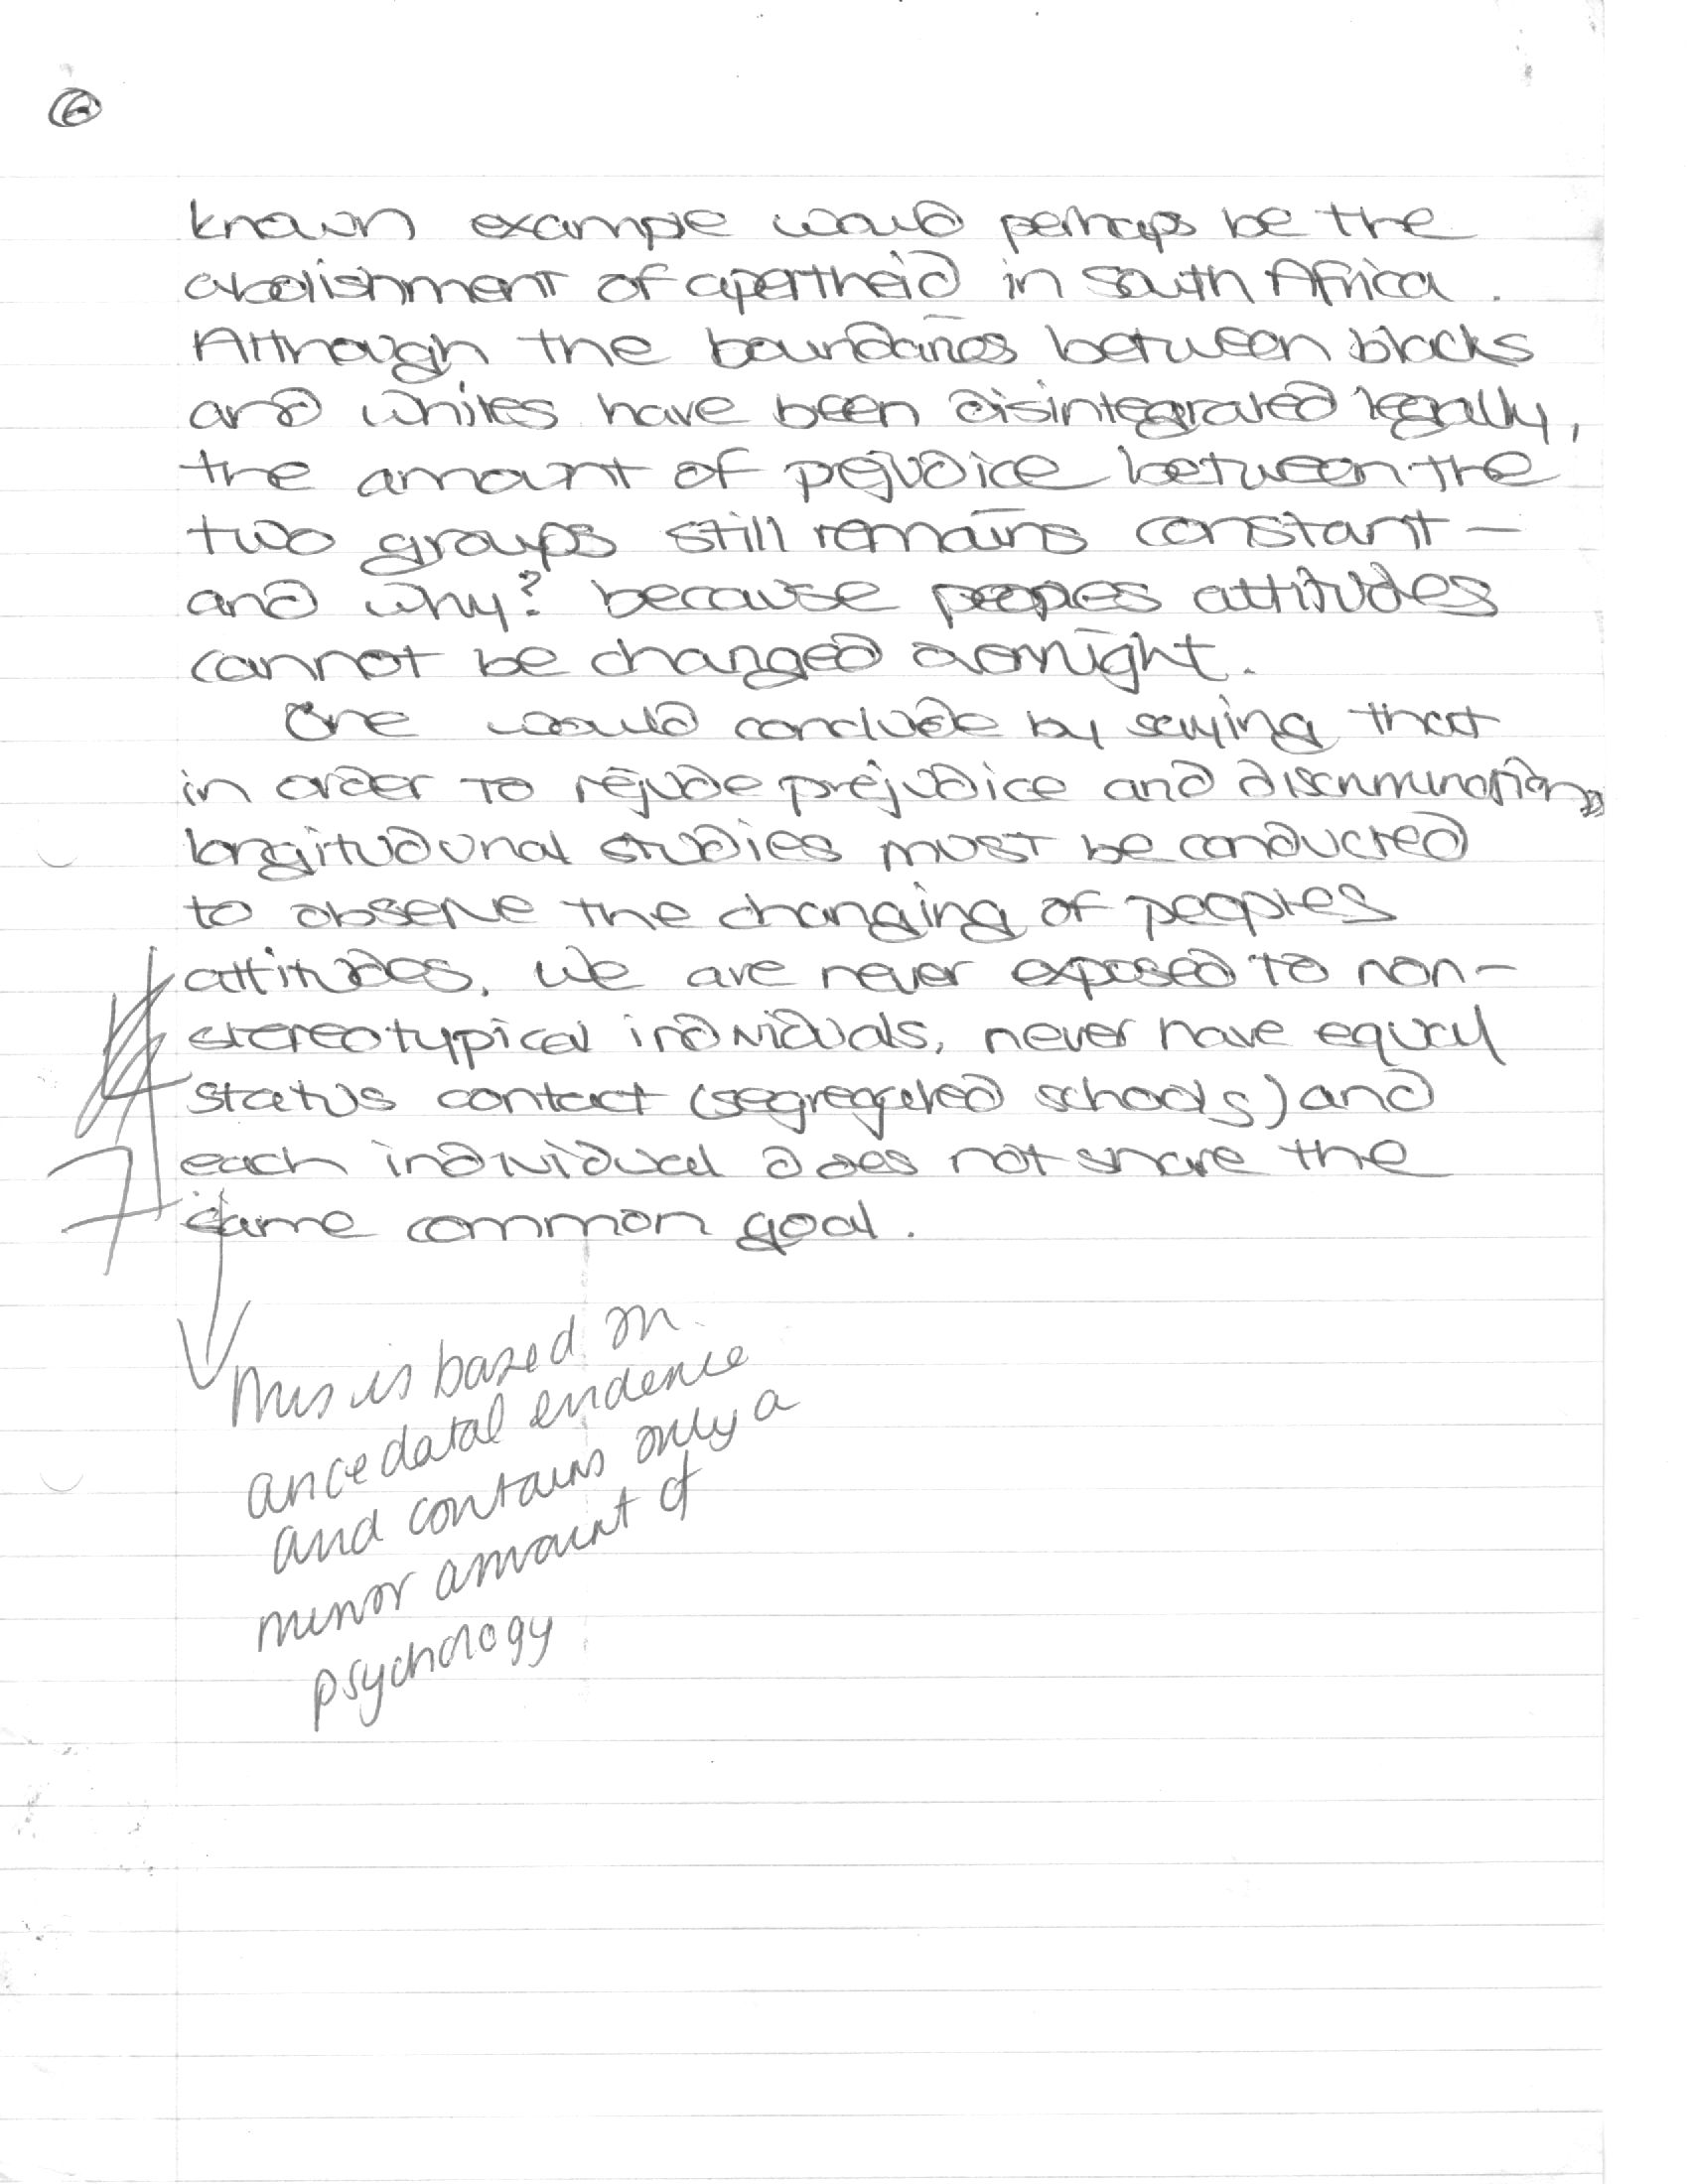 6
known example would perhaps be the
abolishment of apertheid in South Africa.
Although the boundaries between blacks
and whites have been disintegrated legally,
the amount of pejudice between the
two groups still remains constant -
and why? because peoples attitudes
cannot be changed overnight.
One would conclude by saying that
in order to rejude prejudice and discrimination,
longitudunal studies must be conducted
to observe the changing of peoples
attitudes. We are never exposed to non-
stereotypical individuals, never have equal
status contact (segregated schools) and
each individual does not share the
same common goal.
This is based on
ancedatal evidence
and contains only a
minor amount of
psychology